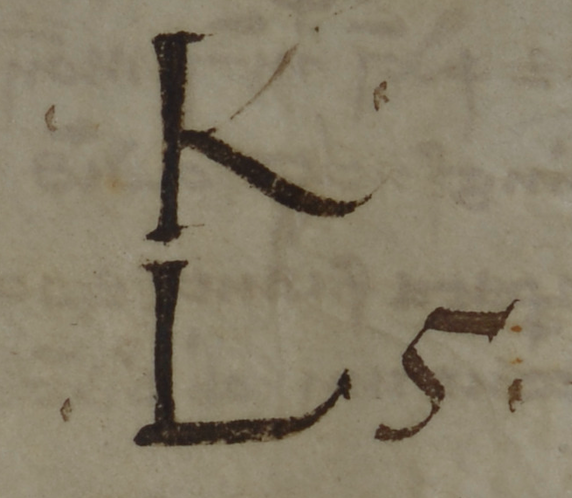 · K ·
· L 5 ·